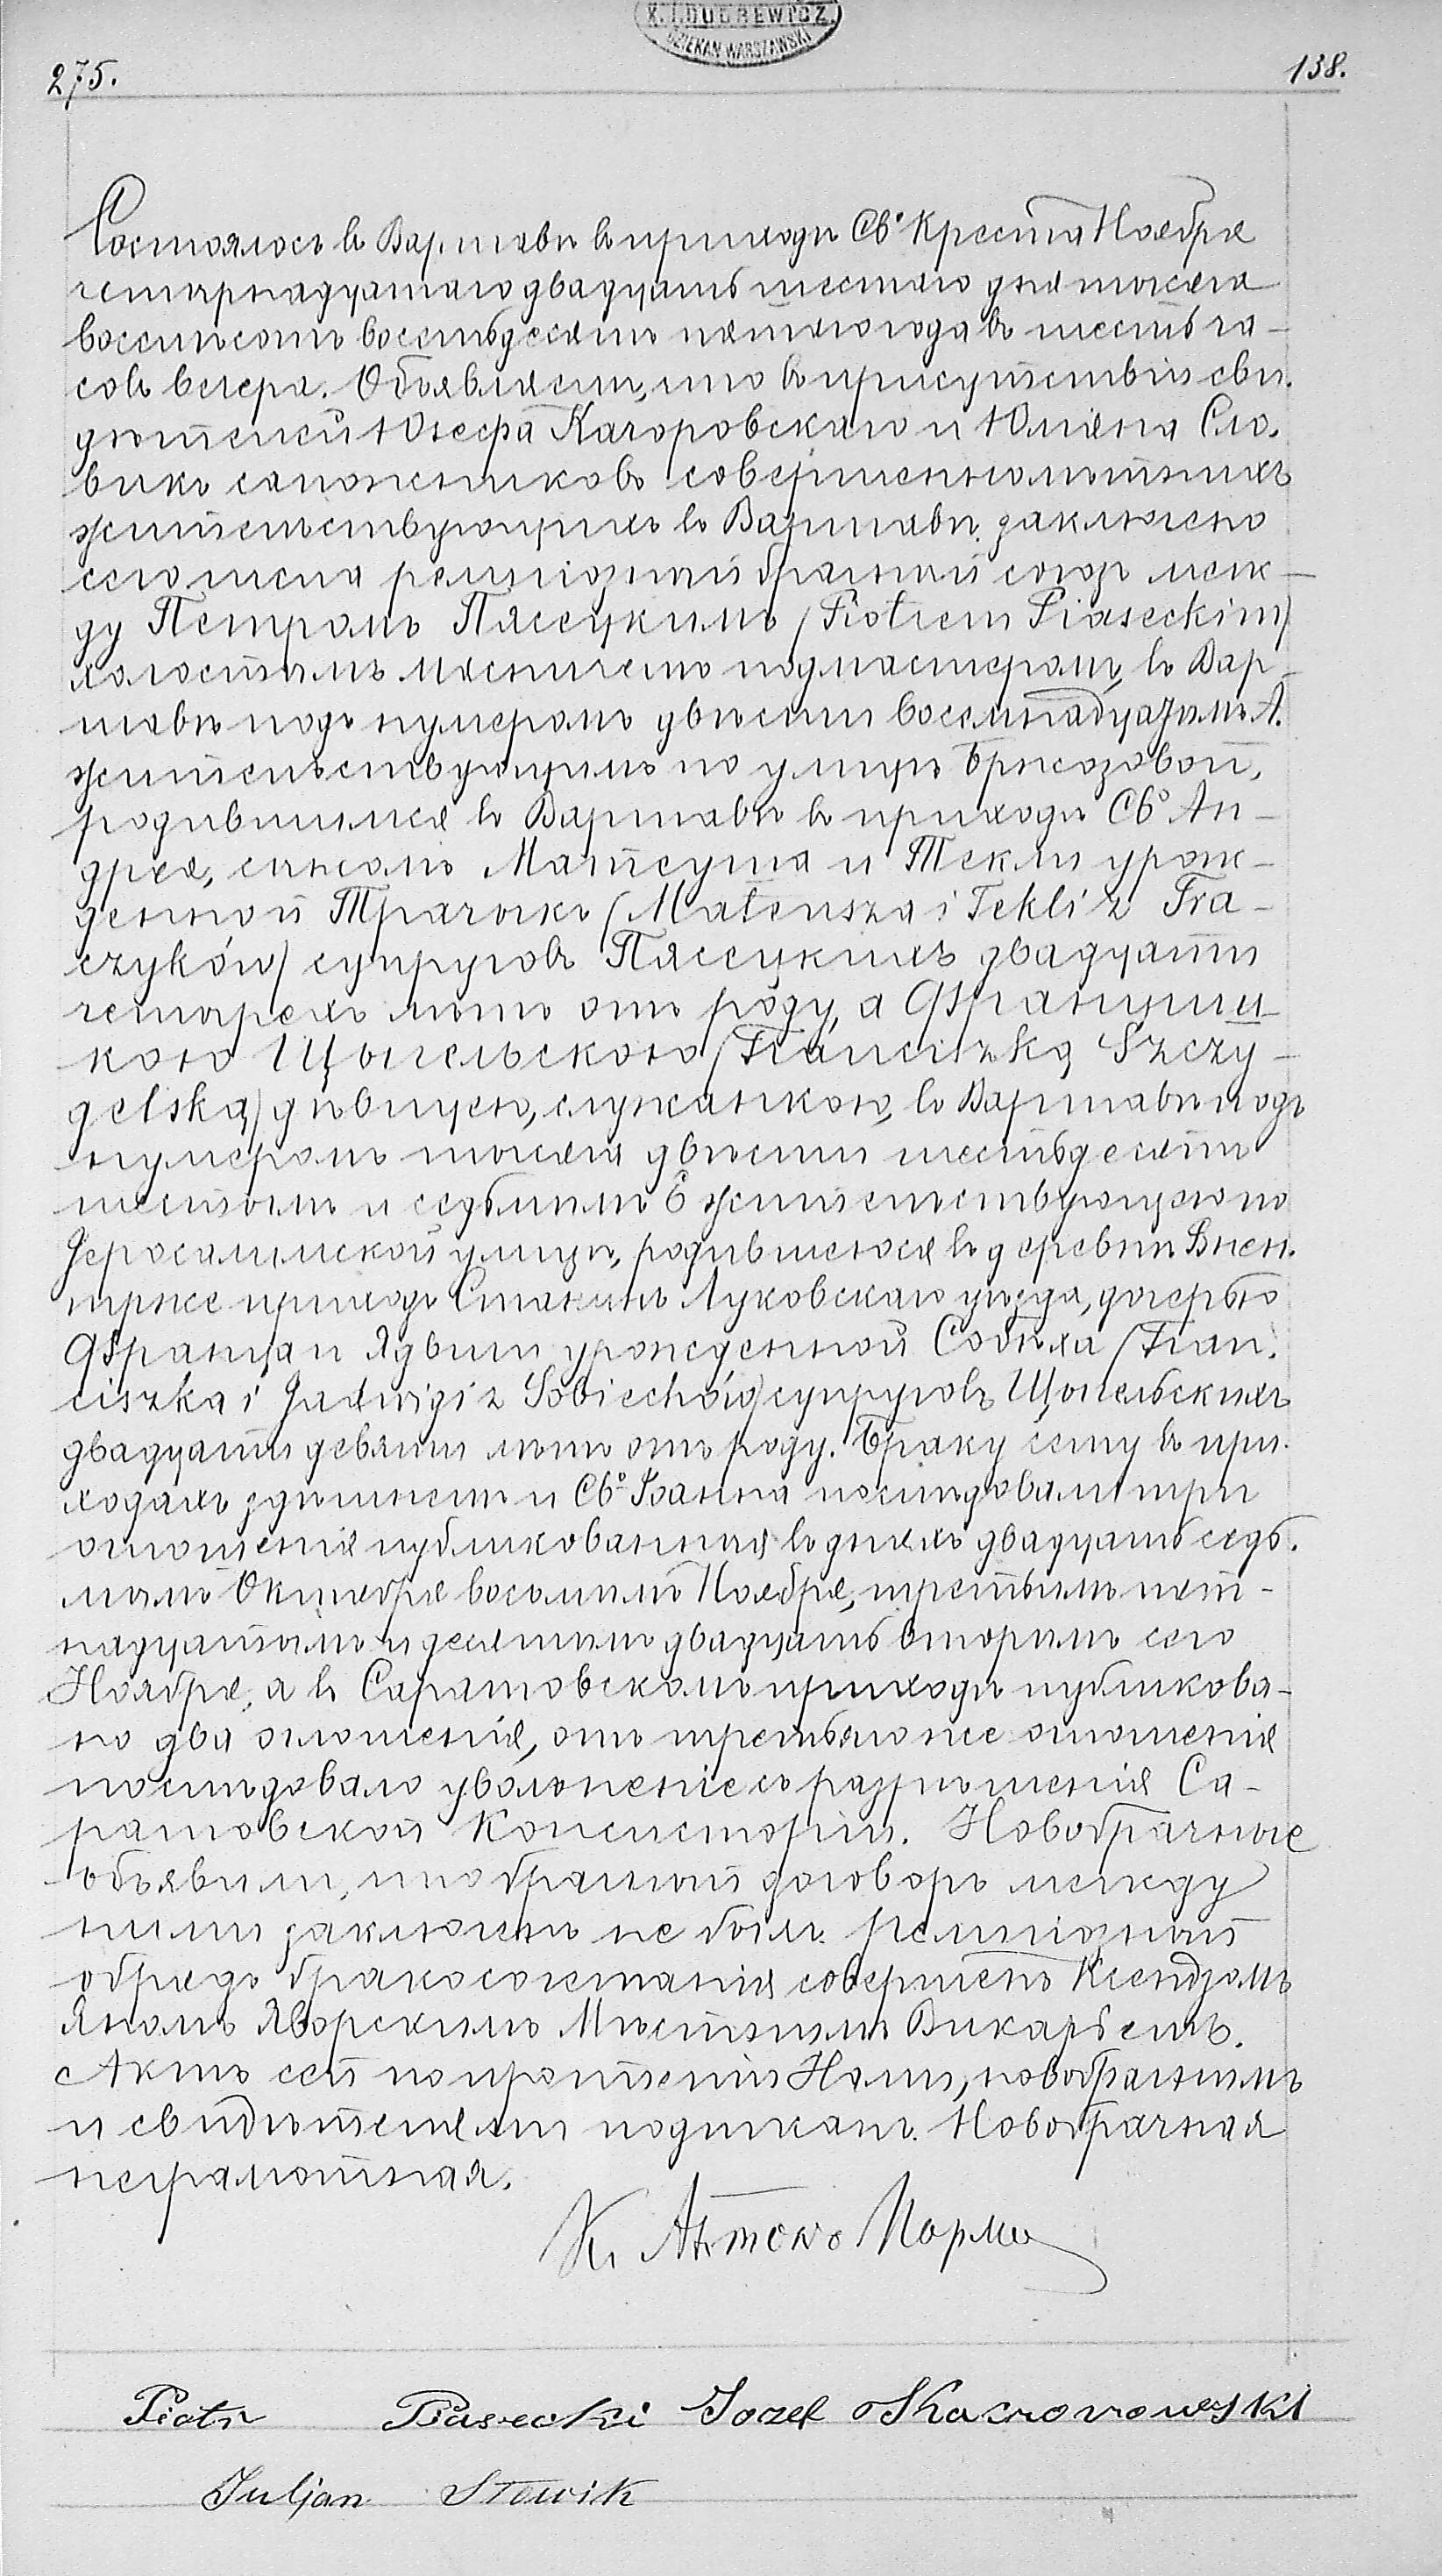 K. I. DUDREWICZ.
DZIEKAN WARSZAWSKI
275.
138.
Состоялось въ Варшавѣ въ приходѣ Св. Креста Ноября
четырнадцатаго двадцать шестаго дня тысяча
восемьсотъ восемьдесятъ пятаго года въ шесть ча-
совъ вечера. Объявляемъ, что въ присутствіи сви-
дѣтелей Юзефа Качоровскаго и Юліяна Сло-
викъ сапожниковъ совершеннолѣтнихъ
жительствующихъ въ Варшавѣ, заключено
сего числа религіозный брачный союзъ меж-
ду Петромъ Пясецкимъ (Piotrem Piaseckim)
холостымъ мѧстичемъ подмастеромъ, въ Вар-
шавѣ подъ нумеромъ двѣсти восемнадцатымъ А.
жительствующимъ по улицѣ Брисозовой,
родившимся въ Варшавѣ въ приходѣ Св. Ан-
дрея, сыномъ Матеуша и Текли урож-
денной Трачыкъ (Mateusza i Tekli z Tra-
czyków) супруговъ Пясецкихъ двадцати
четырехъ лѣтъ отъ роду, а Францииш-
кою Щыгельскою (Franciszką Szczy-
gelską) дѣвицею, служанкою, въ Варшавѣ подъ
нумеромъ тысяча двѣсти шестьдесятъ
шестымъ и седьмымъ Е жительствующею по
Іерозалимской улицѣ, родившеюся въ деревнѣ
приходѣ Станинъ Луковскаго уѣзда, дочерью
Францa и Ядвиги урожденной Собѣха (Fran-
ciszka i Jadwigi z Sobiechów) супруговъ Щыгельскихъ
двадцати девяти лѣтъ отъ роду. Браку сему въ при-
ходахъ здѣшнемъ и Св. Іоанна послѣдовали три
оглошенія публикованныя въ дняхъ двадцать седь-
мымъ Октября восьмымъ Ноября, третьимъ пят-
надцатымъ и десятымъ двадцать вторымъ сего
Ноября, а въ Саратовскомъ приходѣ публикова-
но два оглошенія, отъ третьяго же оглошенія
послѣдовало уволоненіе съ разрѣшенія Са-
ратовской Консисторіи. Новобрачные
объявили, что брачный договоръ между
ними заключенъ не былъ. Религіозный
обрядъ бракосочетанія совершенъ Ксендзомъ
Яномъ Яворскимъ Мѣстнымъ Викарьемъ.
Актъ сей по прочтеніи Нами, новобрачнымъ
и свидѣтелями подписанъ. Новобрачная
неграмотная.
К. Антонъ
Piotr Piasecki Jozef Kaczorowski
Juljan Słowik